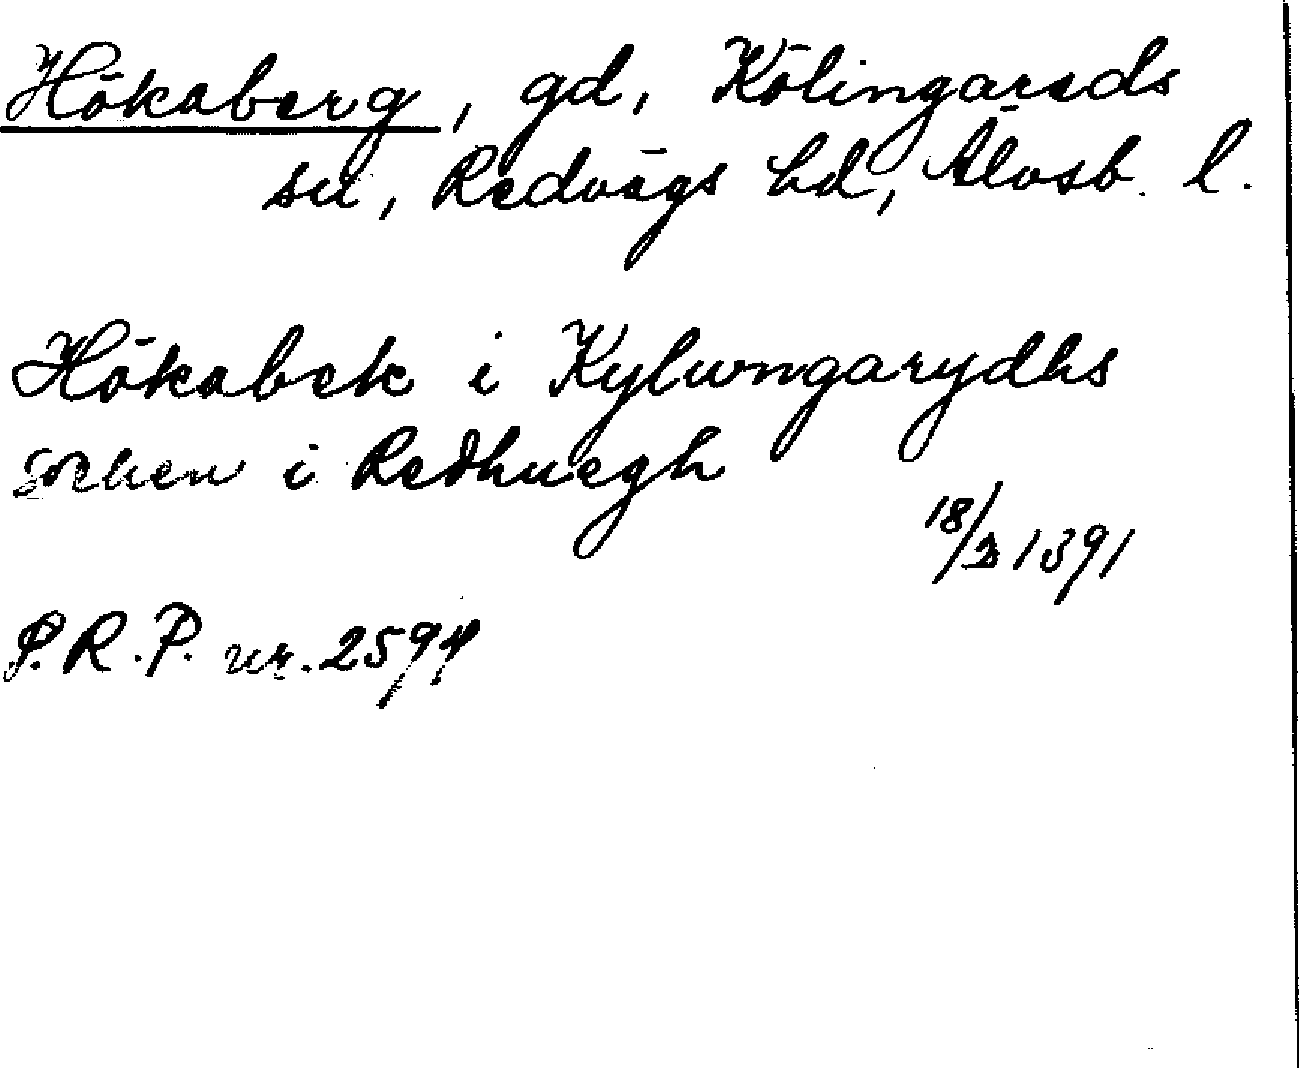 Hökaberg, gd, Kölingareds
sn, Redvägs hd, Älvsb. l.
Hökabek i Kylwngarydhs
sochen i Redhuegh
18/2 1391
S.R.P. nr. 2594